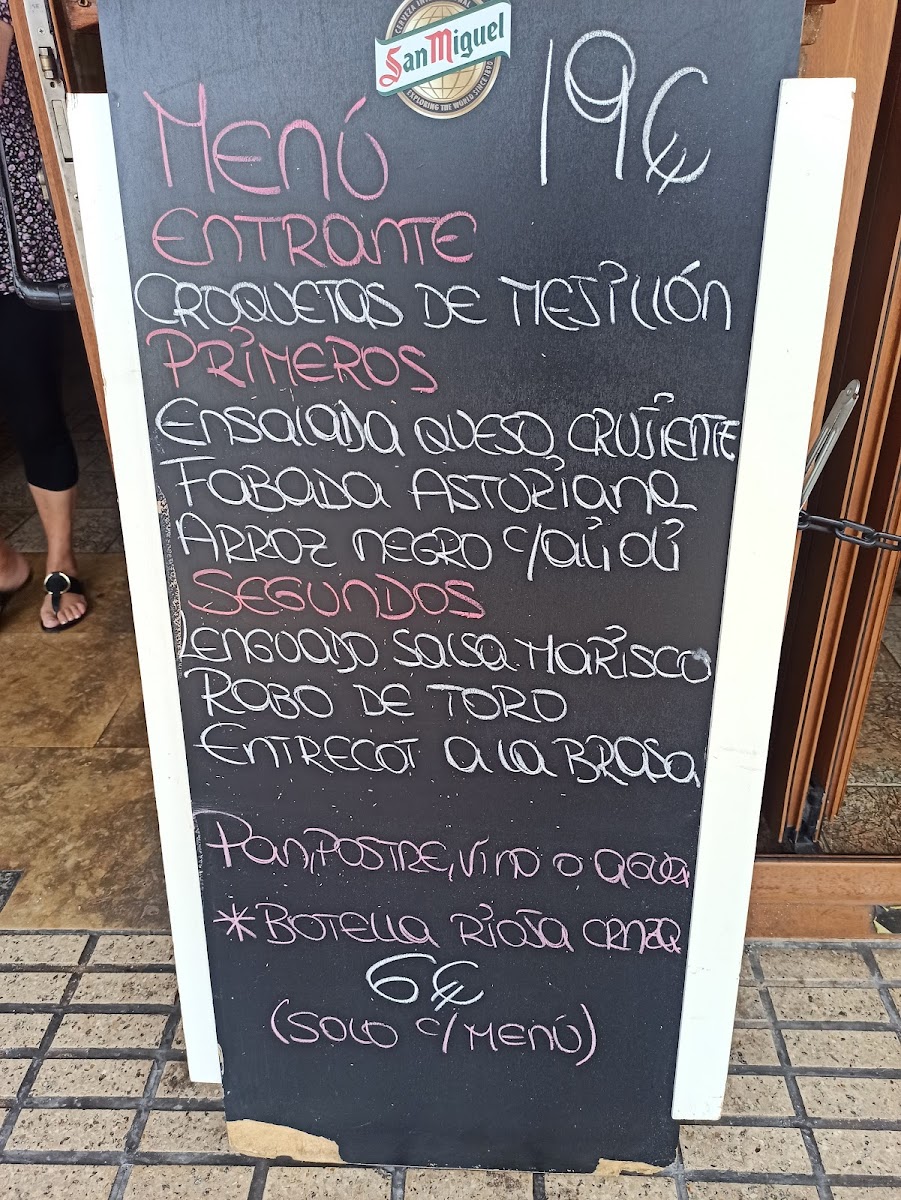 CERVEZA INTERNACIONAL
San Miguel
EXPLORING THE WORLD SINCE 1890
19€
MENÚ
ENTRANTE
CROQUETAS DE MEJILLÓN
PRIMEROS
ENSALADA QUESO, CRUJIENTE
FABADA ASTURIANA
ARROZ NEGRO C/ALIOLI
SEGUNDOS
LENGUADO SALSA MARISCO
RABO DE TORO
ENTRECOT A LA BRASA
PAN, POSTRE, VINO O AGUA
*BOTELLA RIOJA CRNZA
6€
(SOLO C/MENÚ)